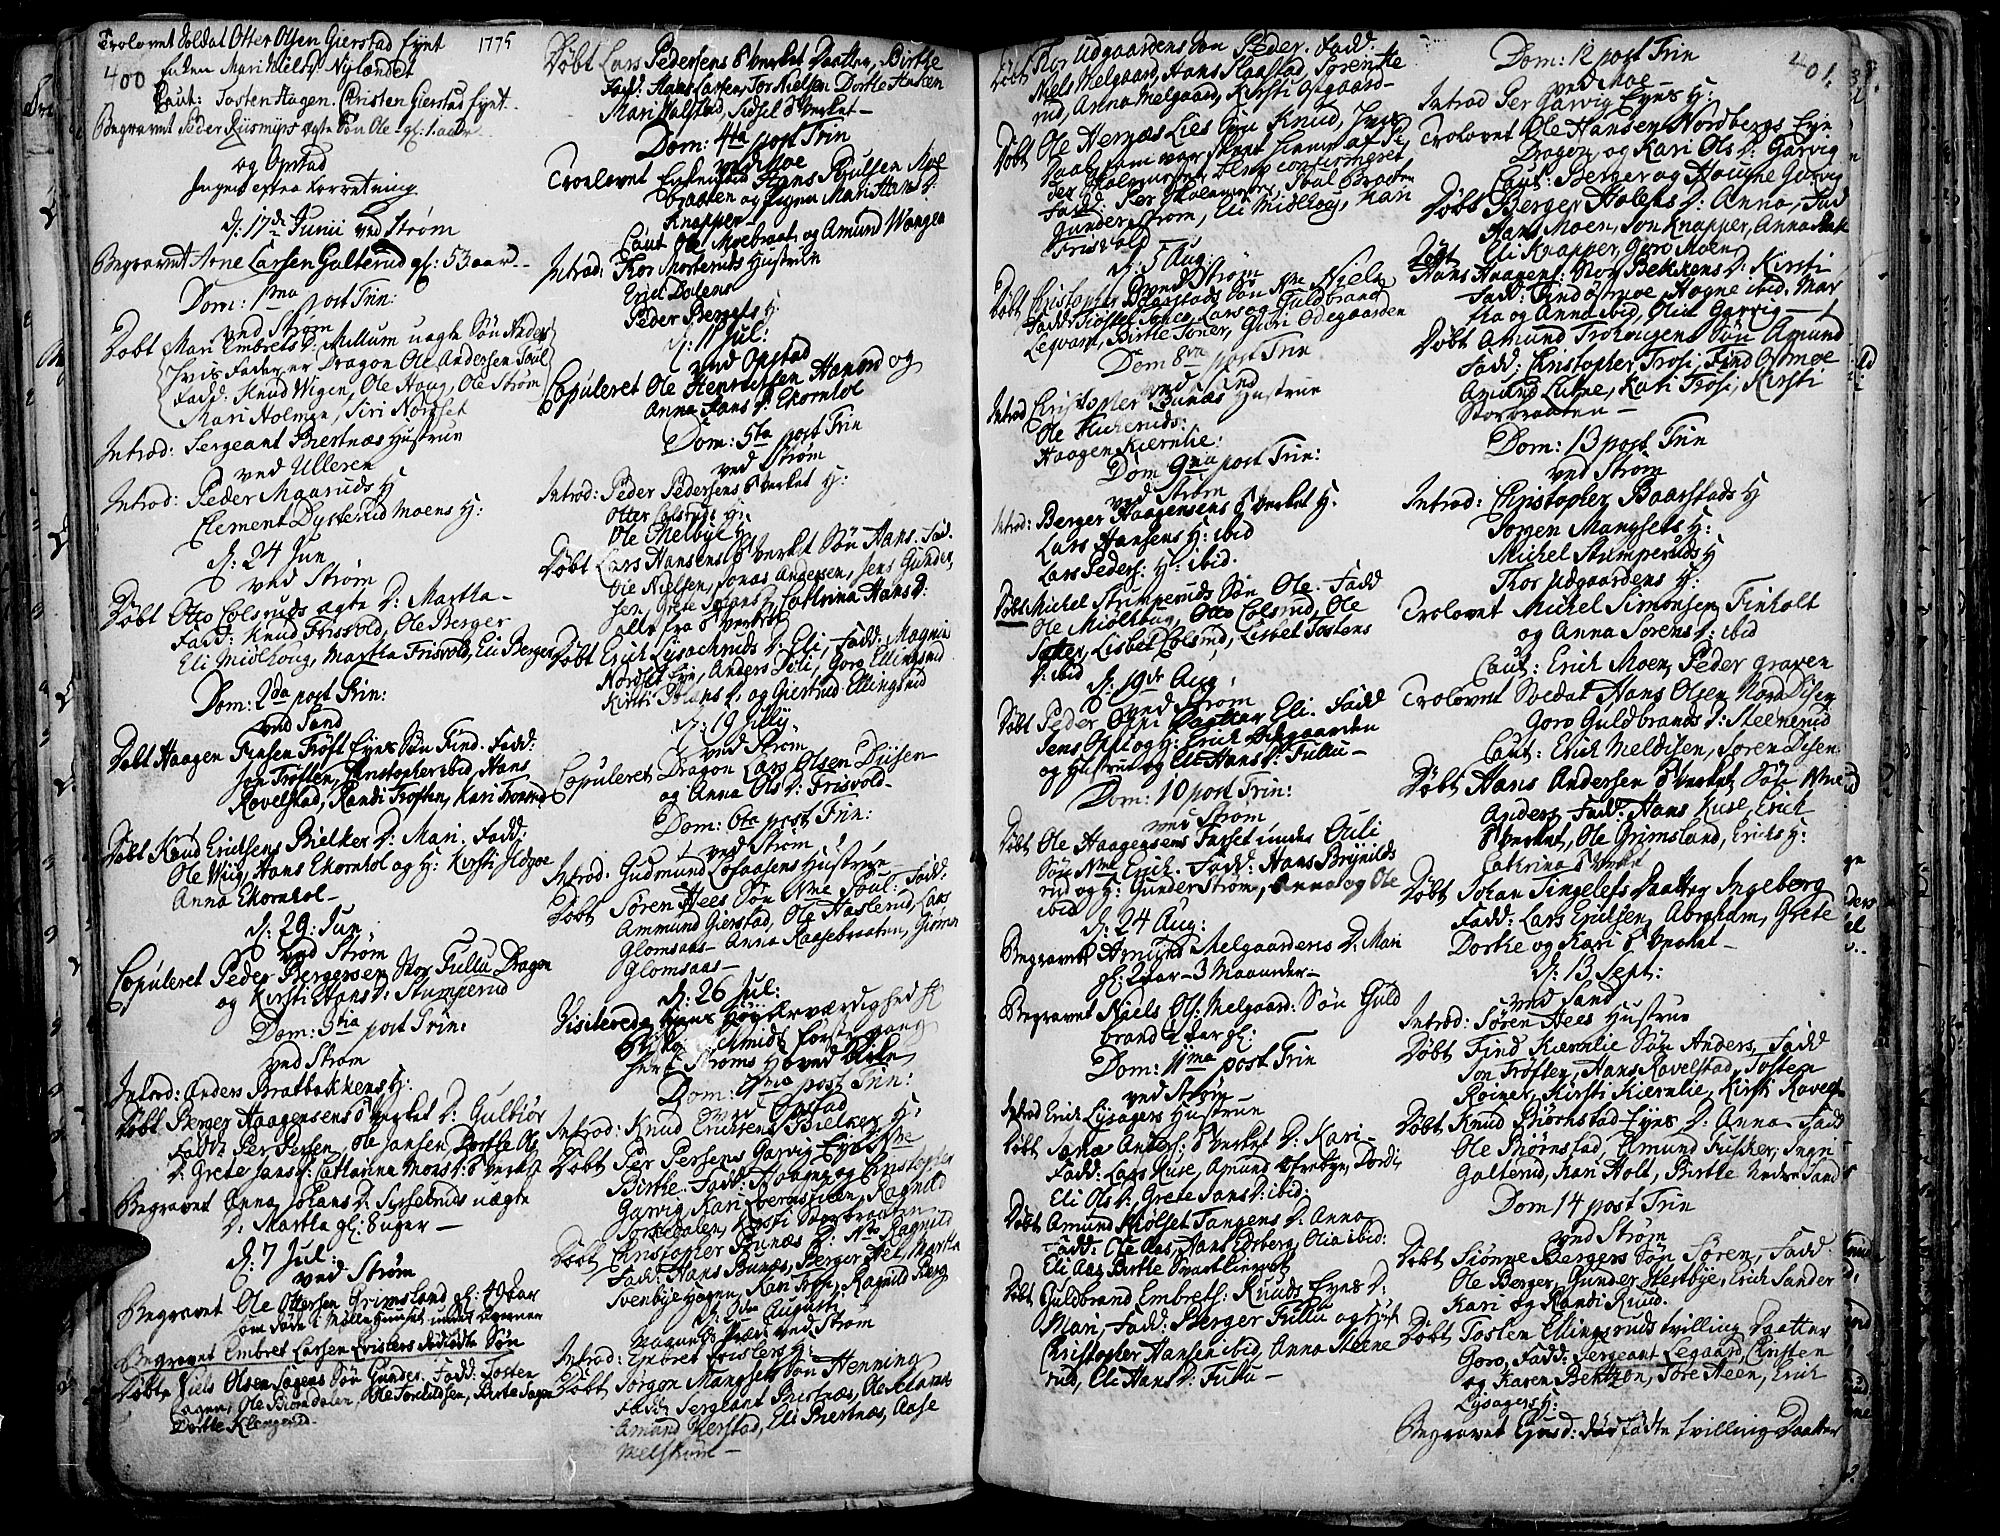 Trolovet Soldat Otter Olsen Gierstad Eynt 1775
400 Enken Mari Niels D: Nylandet
Caut: Tosten Hagen. Christen Gierstad Eynt.
Begravet Peder Rusmyrs ægte Søn Ole gl: 1 aar
og Opstad
Ingen extra Forretning
D: 17de Junii ved Strøm
Begravet Arne Larsen Galterud gl: 53 aar
Dom: 1ma post Trin:
ved Strøm
Døbt Mari Embrets D: Millum uægte Søn Anders
hvis Fader er Dragon Ole Andersen
Fadd: Knud Wigen, Ole Haug, Ole Strøm
Mari Holmen, Siri Nordset
Introd: Sergeant Biertnæs Hustrue
ved Ulleren
Introd: Peder Maaruds H
Clement Dysterud Moens H:
D: 24 Jun
ved Strøm
Døbt Otto Colsruds ægte D: Martha
Fadd: Knud Frisvold, Ole Berger
Eli Midthoug, Martha Frisvold, Eli Berger
Dom: 2da post Trin:
ved Sand
Døbt Haagen Finsen Trøft Eyes Søn Find. Fadd:
Jon Trøften, Christopher ibid, Hans
Rovelstad, Randi Trøften, Kari
Døbt Knud Erichsens Bielker D: Mari. Fadd:
Ole Wiig, Hans Ekornhol og H: Kirsti
Anna Ekornhol
D: 29: Jun.
ved Strøm
Copuleret Peder Bergersen Stor Fullu Dragon
og Kirsti Hans D: Stumperud
Dom: 3tia post Trin:
ved Strøm
Introd: Anders Bratbakkens H:
Døbt Berger Haagensens Verket D: Gulbiør
Fadd: Per Persen, Ole Jansen, Dorthe Ols
D: Grete Jans D: Cathrina Mons D: Verket
Begravet Anna Johans D: uægte
D: Martha gl: 8 uger
D: 7 Jul:
ved Strøm
Begravet Ole Ottersen Grimsland gl: 49 aar
som døde i
Begravet Embret Larsen Søn
Døbt Niels Olsen Sagens Søn Gunder. Fadd: Tosten
Ole Biørndalen, Ole Torkildsen, Berte Sagen
Dorthe
Døbt Lars Pedersens Verket Daatter, Birthe
Fadd: Hans Larsen, Tor Nielsen, Dorthe Haken
Mari Halstad, Sidsel Verket
Dom: 4ta post Trin
ved Moe
Troelovet Enkemand Hans Poulsen Moe
braaten og Pigen Mari Hans D:
Knapper
Caut Ole Moebraat og Amund Wangen
Introd: Thor Morteruds Hustrue
Erich Dolens
Peder Bergets H:
D: 11 Jul:
ved Opstad
Copuleret Ole Henrichsen Hanem og
Anna Hans D: Ekornhol
Dom: 5ta post Trin
ved Strøm
Introd: Peder Pedersens Verket H:
Otter Colsruds H:
Ole Melbye H:
Døbt Lars Hansens Verket Søn Hans. Fad.
Ole Nielsen, Jonas Andersen, Jens Gunder
sen, Grete Johans D: Cathrina Hans D:
alle fra Verket
Døbt Erich Lysachruds D: Eli, Fadd: Magnus
Nordset Eyn, Anders Joli, Goro Ellingsrud
Kirsti Johans D: og Giertrud Ellingsrud
D: 19 July
ved Strøm
Copuleret Dragon Lars Olsen Disen
og Anna Ols D: Frisvold
Dom: 6ta post Trin:
ved Strøm
Introd: Gudmund Lofaasens Hustrue
Døbt Søren Hees Søn Nme Poul: Fadd:
Ammund Gierstad, Ole Haslerud, Lars
Glomsaas Anna Raasebraaten, Giøren
Glomsaas
D: 26 Jul:
Visiterede Hans HøyErværdighed H
Schmidt første gang
her i Strøms Hoved Kirke
Dom: 7ma post Trin:
ved Opstad
Introd: Knud Erichsens Bielker H:
Døbt Per Persens Garvig Eyn
Birthe. Fadd: Haagen og Christopher
Garvig, Kari Ragnild
Kirsti Storbraaten
Døbt Christopher Bunæs D: Nn Ragnild
Fadd: Hans Bunæs, Berger Martha
Svenbye hagen, Kari Trosi, Ragnild Berg
D: 2den Augusti
ved Strøm
Introd: Embret H:
Døbt Jørgen Mangset Søn Henning
Fadd: Sergeant Biertnæs, Ole
Amund Kierstad, Eli Biertnæs, Aase
Melstrøm
Døbt Thor Udgaardens Søn Peder. Fadd:
Niels Melgaard, Hans Slaastad, Sørenthe
rud, Anna Melgaard, Kirsti Opgaard
Døbt Ole Hernæs Lies Søn Knud,
Daab som var af
der
Fadd: Per Poul Braaten
Gunder Strøm, Eli Midthoug, Kari
Frisvold
D: 5 Aug:
ved Strøm
Døbt Christopher Baarstads Søn Nme Niels
Fadd: Lars og Guldbrand
Legvam, Birthe Toner, Guri Odegaarden
Dom 8va post Trin
ved Sand
Introd Christopher Bunæs Hustrue
Ole
Haagen Kiernlie:
Dom 9na post Trin:
ved Strøm
Introd: Berger Haagensens Verket H.
Lars Hansens H: ibid
Lars Peders: H: ibid.
Døbt Michel Stumperuds Søn Ole. Fadd
Ole Midthug, Otto Colsrud, Ole
Sotter, Lisbet Colsrud, Lisbet Tostens
D: ibid
D: 19de Aug:
ved Strøm
Døbt Peder Oppi Daatter Eli. Fadd
Jens Oppi og H: Erich Odegaarden
og Hustrue og Eli Hans D: Fullu
Dom: 10 post Trin:
ved Strøm
Døbt Ole Haagensens Farset
Søn Nme Erich. Fadd: Hans Brynilds
rud og H: Gunder Strøm, Anna og Ole
ibid
D: 24 Aug:
Begravet Amund Melgaardens D: Mari
gl: 2 aar 3 Maaneder
Begravet Niels Ols: Melgaard: Søn Guld
brand gl:
Dom: 11ma post Trin
ved Strøm
Introd Erich Lysagers Hustrue
Døbt Anders: Verket D: Kari
Fadd: Lars Kuse, Amund Dordi,
Eli Ols D: Grete Jans D: ibid:
Døbt Amund Miølset Tangens D: Anna
Fadd: Ole Aas, Hans Edsberg, Olia ibid:
Eli Aas Birthe
Døbt Guldbrand Embrets: Ruuds Eyes D:
Mari, Fadd: Berger Fullu og Hust
Christopher Hansen ibid, Anna Steene
rud, Eli Hans D: Fullu
401.
Dom: 12 post Trin
ved Moe
Introd Per Garvig Eyes H:
Trolovet Ole Hansen Nordbergs Eyn
Dragon, og Kari Ols D: Garvig
Caut: Berger og Haugne Garvig
Døbt Berger Holens D: Anna, Fad
Hans Moen, Jon Knapper, Anna
Eli Knapper, Goro Moen
Døbt Hans Haagens: Nor Bekkens D: Kirsti
Fadd: Find Østmoe, Hogne ibid. Mar
tha og Anna ibid, Olia Garvig
Døbt Amund Trohougens Søn Amund
Fadd: Christopher Trosi, Find Østmoe
Amund Kari Trosi, Kirsti
Storbraaten
Dom: 13 post Trin
ved Strøm
Introd: Christopher Baarstads H
Jørgen Mangsets H:
Michel Stumperuds H
Thor Udgaardens H:
Trolovet Michel Simonsen Finholt
og Anna Sørens D: ibid
Caut: Erich Moen, Peder graven
Trolovet Soldat Hans Olsen Nord Disen
Goro Guldbrands D: Steenerud
Caut: Erich Meldisen, Søren Disen
Døbt Hans Andersen Verket Søn Nme
Anders, Fadd: Hans Kuse, Erich
Verket, Ole Grimsland, Erichs H:
Cathrina Verket
Døbt Johan Tingelefs Daatter Ingeborg
Fadd: Lars Erichsen, Abraham, Grete
Dorthe og Kari Verket
D: 13 Sept:
ved Sand
Introd: Søren Hees Hustrue
Døbt Find Kiernlie Søn Anders, Fadd
Jon Trøften, Hans Rovelstad, Tosten
Roiner, Kirsti Kiernlie, Kirsti Rovels
Døbt Knud Biørnstad Eyes D: Anna Fadd
Ole Biørnstad, Amund Fusker, Ingri
Galterud, Kari Holt, Birthe Nedre Sand
Dom 14 post Trin
ved Strøm
Døbt Siønne Bergers Søn Søren, Fadd
Ole Berger, Gunder Erich Sander
Kari og Randi Ruud.
Døbt Tosten Ellingsruds tvilling Daatter
Goro, Fadd: Sergeant Legaard, Christen
og Karen Bentzon, Tore Heen, Erich
Lysagers H:
Begravet fødte tvilling Daatter